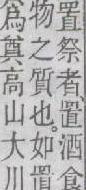 置祭者置酒食
物之質也。如置
為奠高山大川